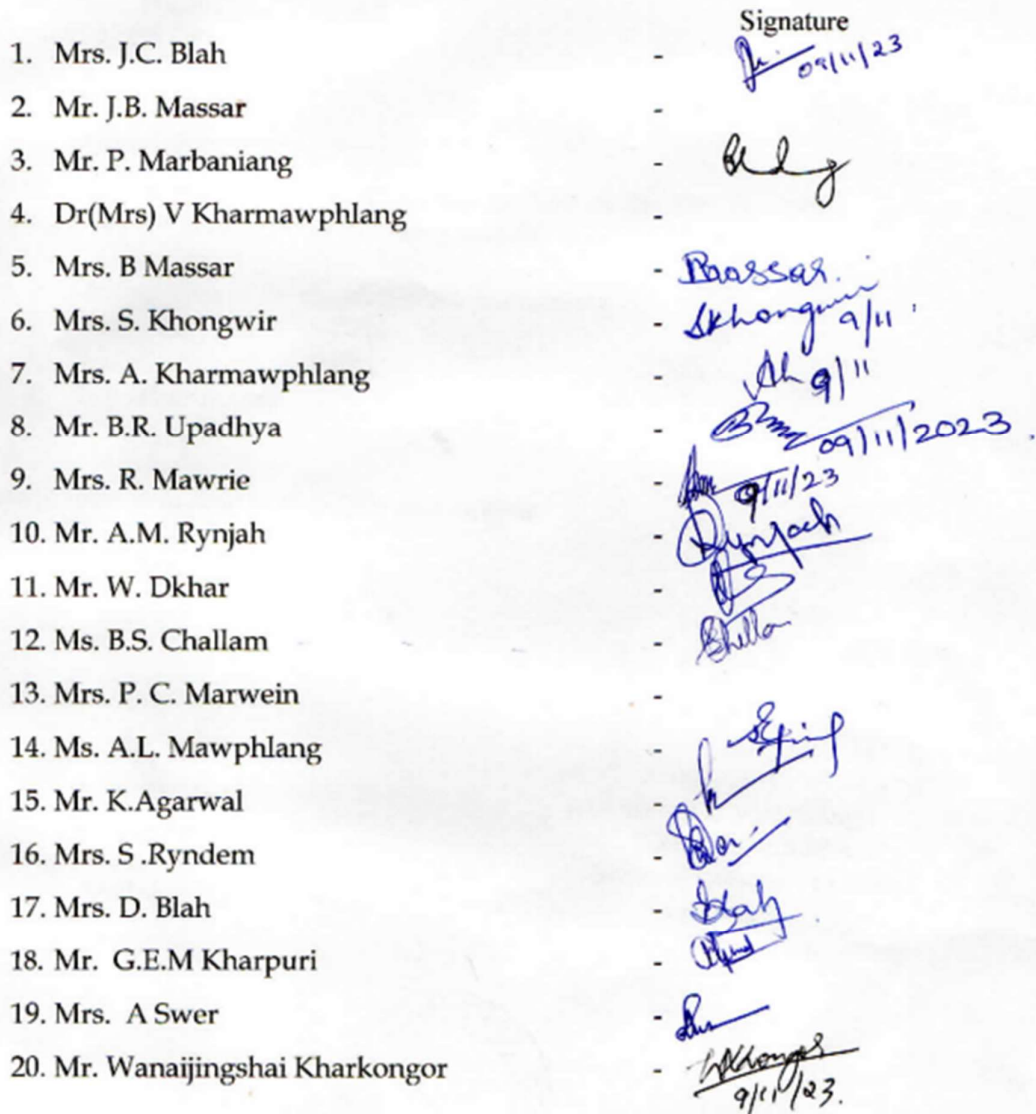 Signature
1. Mrs. J.C. Blah - 09/11/23
2. Mr. J.B. Massar -
3. Mr. P. Marbaniang -
4. Dr(Mrs) V Kharmawphlang -
5. Mrs. B Massar - BMassar.
6. Mrs. S. Khongwir - SKhongwir 9/11
7. Mrs. A. Kharmawphlang - 9/11
8. Mr. B.R. Upadhya - 09/11/2023.
9. Mrs. R. Mawrie - 9/11/23
10. Mr. A.M. Rynjah - Rynjah
11. Mr. W. Dkhar -
12. Ms. B.S. Challam -
13. Mrs. P. C. Marwein -
14. Ms. A.L. Mawphlang -
15. Mr. K.Agarwal -
16. Mrs. S .Ryndem -
17. Mrs. D. Blah - Blah
18. Mr. G.E.M Kharpuri -
19. Mrs. A Swer -
20. Mr. Wanaijingshai Kharkongor -
9/11/23.